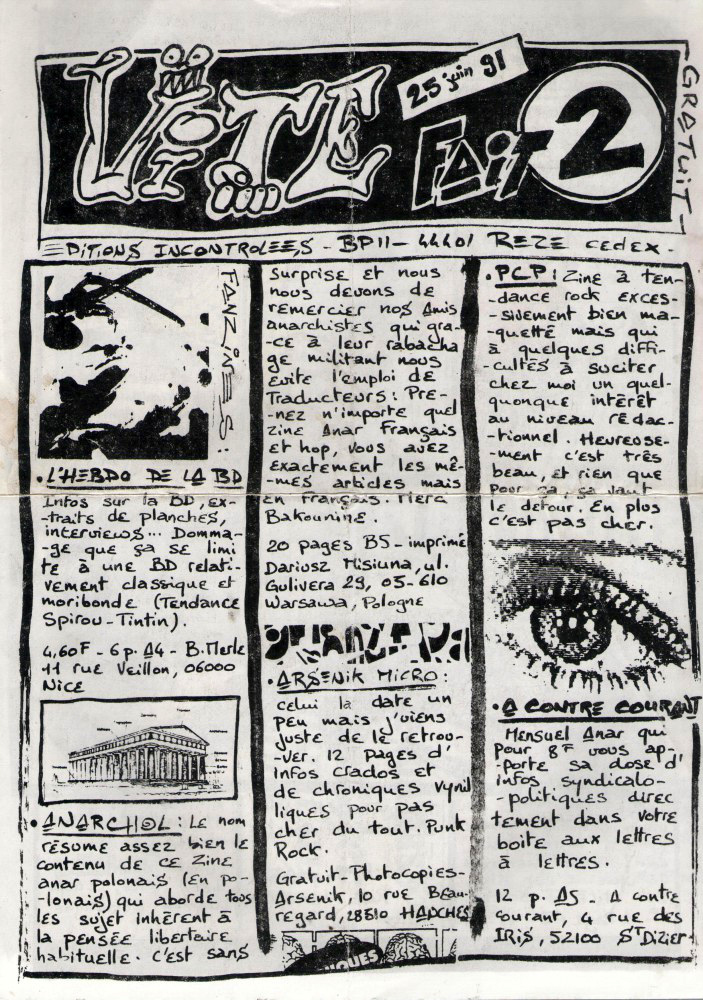 ViTE
FAiT 2
25 juin 91
GRATUIT
EDITIONS INCONTROLEES - BP11 - 44401 REZE CEDEX -
FANZINES:
. L'HEBDO DE LA BD
Infos sur la BD, ex-
-traits de planches,
interviews... Domma-
-ge que ça se limi
te à une BD relati-
vement classique et
moribonde (Tendance
Spirou-Tintin).
4,60F - 6 p. A4 - B. Merle
11 rue Veillon, 06000
NICE
. ANARCHOL: Le nom
résume assez bien le
contenu de ce zine
anar polonais (en po-
-lonais) qui aborde tous
les sujet inhérent à
la pensée libertaire
habituelle. C'est sans
surprise et nous
nous devons de
remercier nos Amis
anarchistes qui gra-
-ce à leur rabacha
ge militant nous
evite l'emploi de
Traducteurs: Pre-
-nez n'importe quel
zine Anar Français
et hop, vous avez
exactement les mê-
-mes articles mais
en Français. Merci
Bakounine.
20 pages B5 - imprimé
Dariusz Misiuna, ul.
Gulivera 29, 05-610
Warsawa, Pologne
. ARSENIK MICRO:
celui là date un
peu mais j'viens
juste de le retrou-
-ver. 12 pages d'
infos crados et
de chroniques vynil
liques pour pas
cher du tout. Punk
Rock.
Gratuit - Photocopies -
Arsenik, 10 rue Beau-
regard, 28510 HANCHES
. PCP: Zine à ten-
-dance rock exces-
-sivement bien ma-
-quetté mais qui
à quelques diffi-
-cultés à suciter
chez moi un quel-
quonque intérêt
au niveau rédac-
-tionnel. Heureuse-
-ment c'est très
beau, et rien que
pour ça, ça vaut
le detour. En plus
c'est pas cher.
. A CONTRE COURANT
Mensuel Anar qui
pour 8F vous ap-
-porte sa dose d'
infos syndicalo-
-politiques direc
tement dans votre
boite aux lettres
à lettres.
12 p. A5 - A contre
courant, 4 rue des
IRIS, 52100 ST Dizier